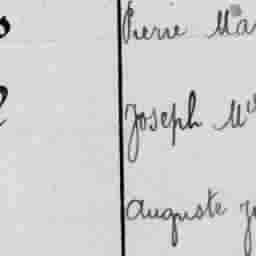 Pierre Ma
Joseph M
Auguste J